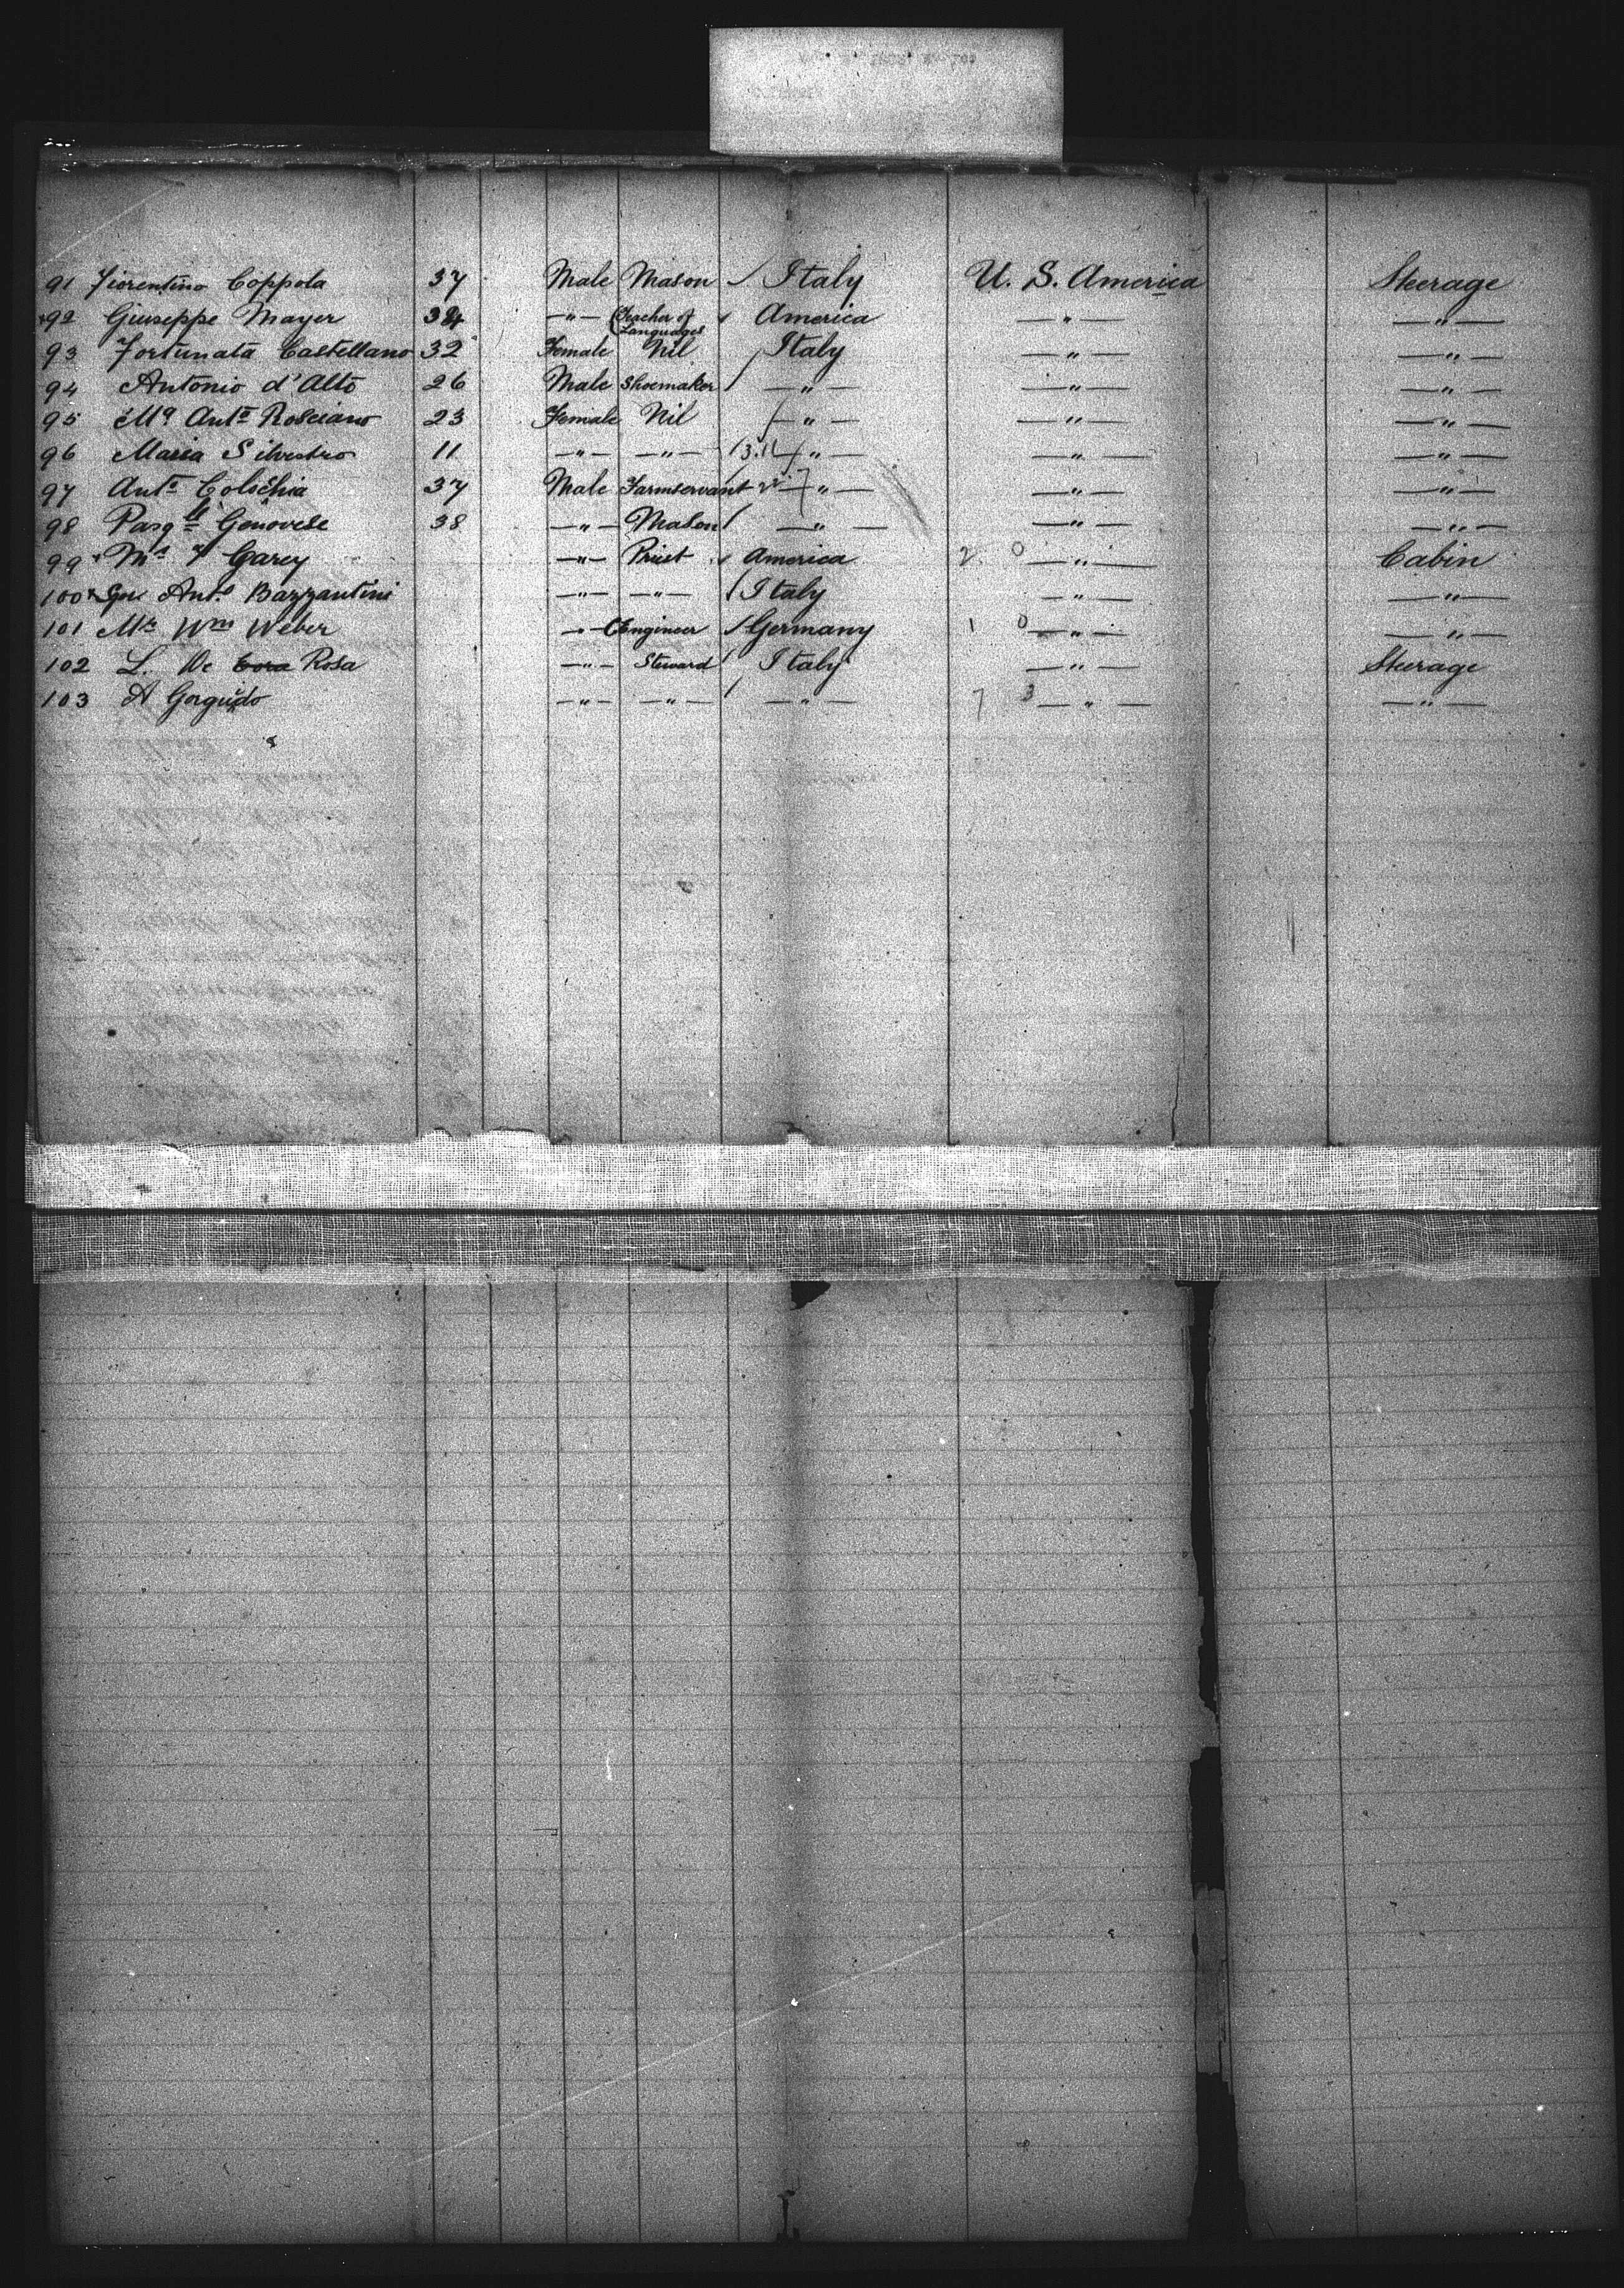 91 Fiorentino Coppola 37 Male Mason / Italy U. S. America Steerage
92 Giuseppe Mayer 34 -"- Teacher of Languages America -"- -"-
93 Fortunata Castellano 32 Female Nil / Italy -"- -"-
94 Antonio d'Alto 26 Male Shoemaker / -"- -"- -"-
95 Ma Anta Rosciano 23 Female Nil / -"- -"- -"-
96 Maria Silvestro 11 -"- -"- / -"- -"- -"-
97 Anta 37 Male Farmservant -"- -"- -"-
98 Pasqll Genovese 38 -"- Mason / -"- -"- -"-
99 Garey -"- Priest America 2 0 -"- Cabin
100 Anto Bazzantini -"- -"- / Italy -"- -"-
101 Mr Wm Weber -"- Engineer / Germany 1 0 -"- -"-
102 L. De Rosa -"- Steward / Italy -"- Steerage
103 A -"- -"- / -"- 7 3 -"- -"-